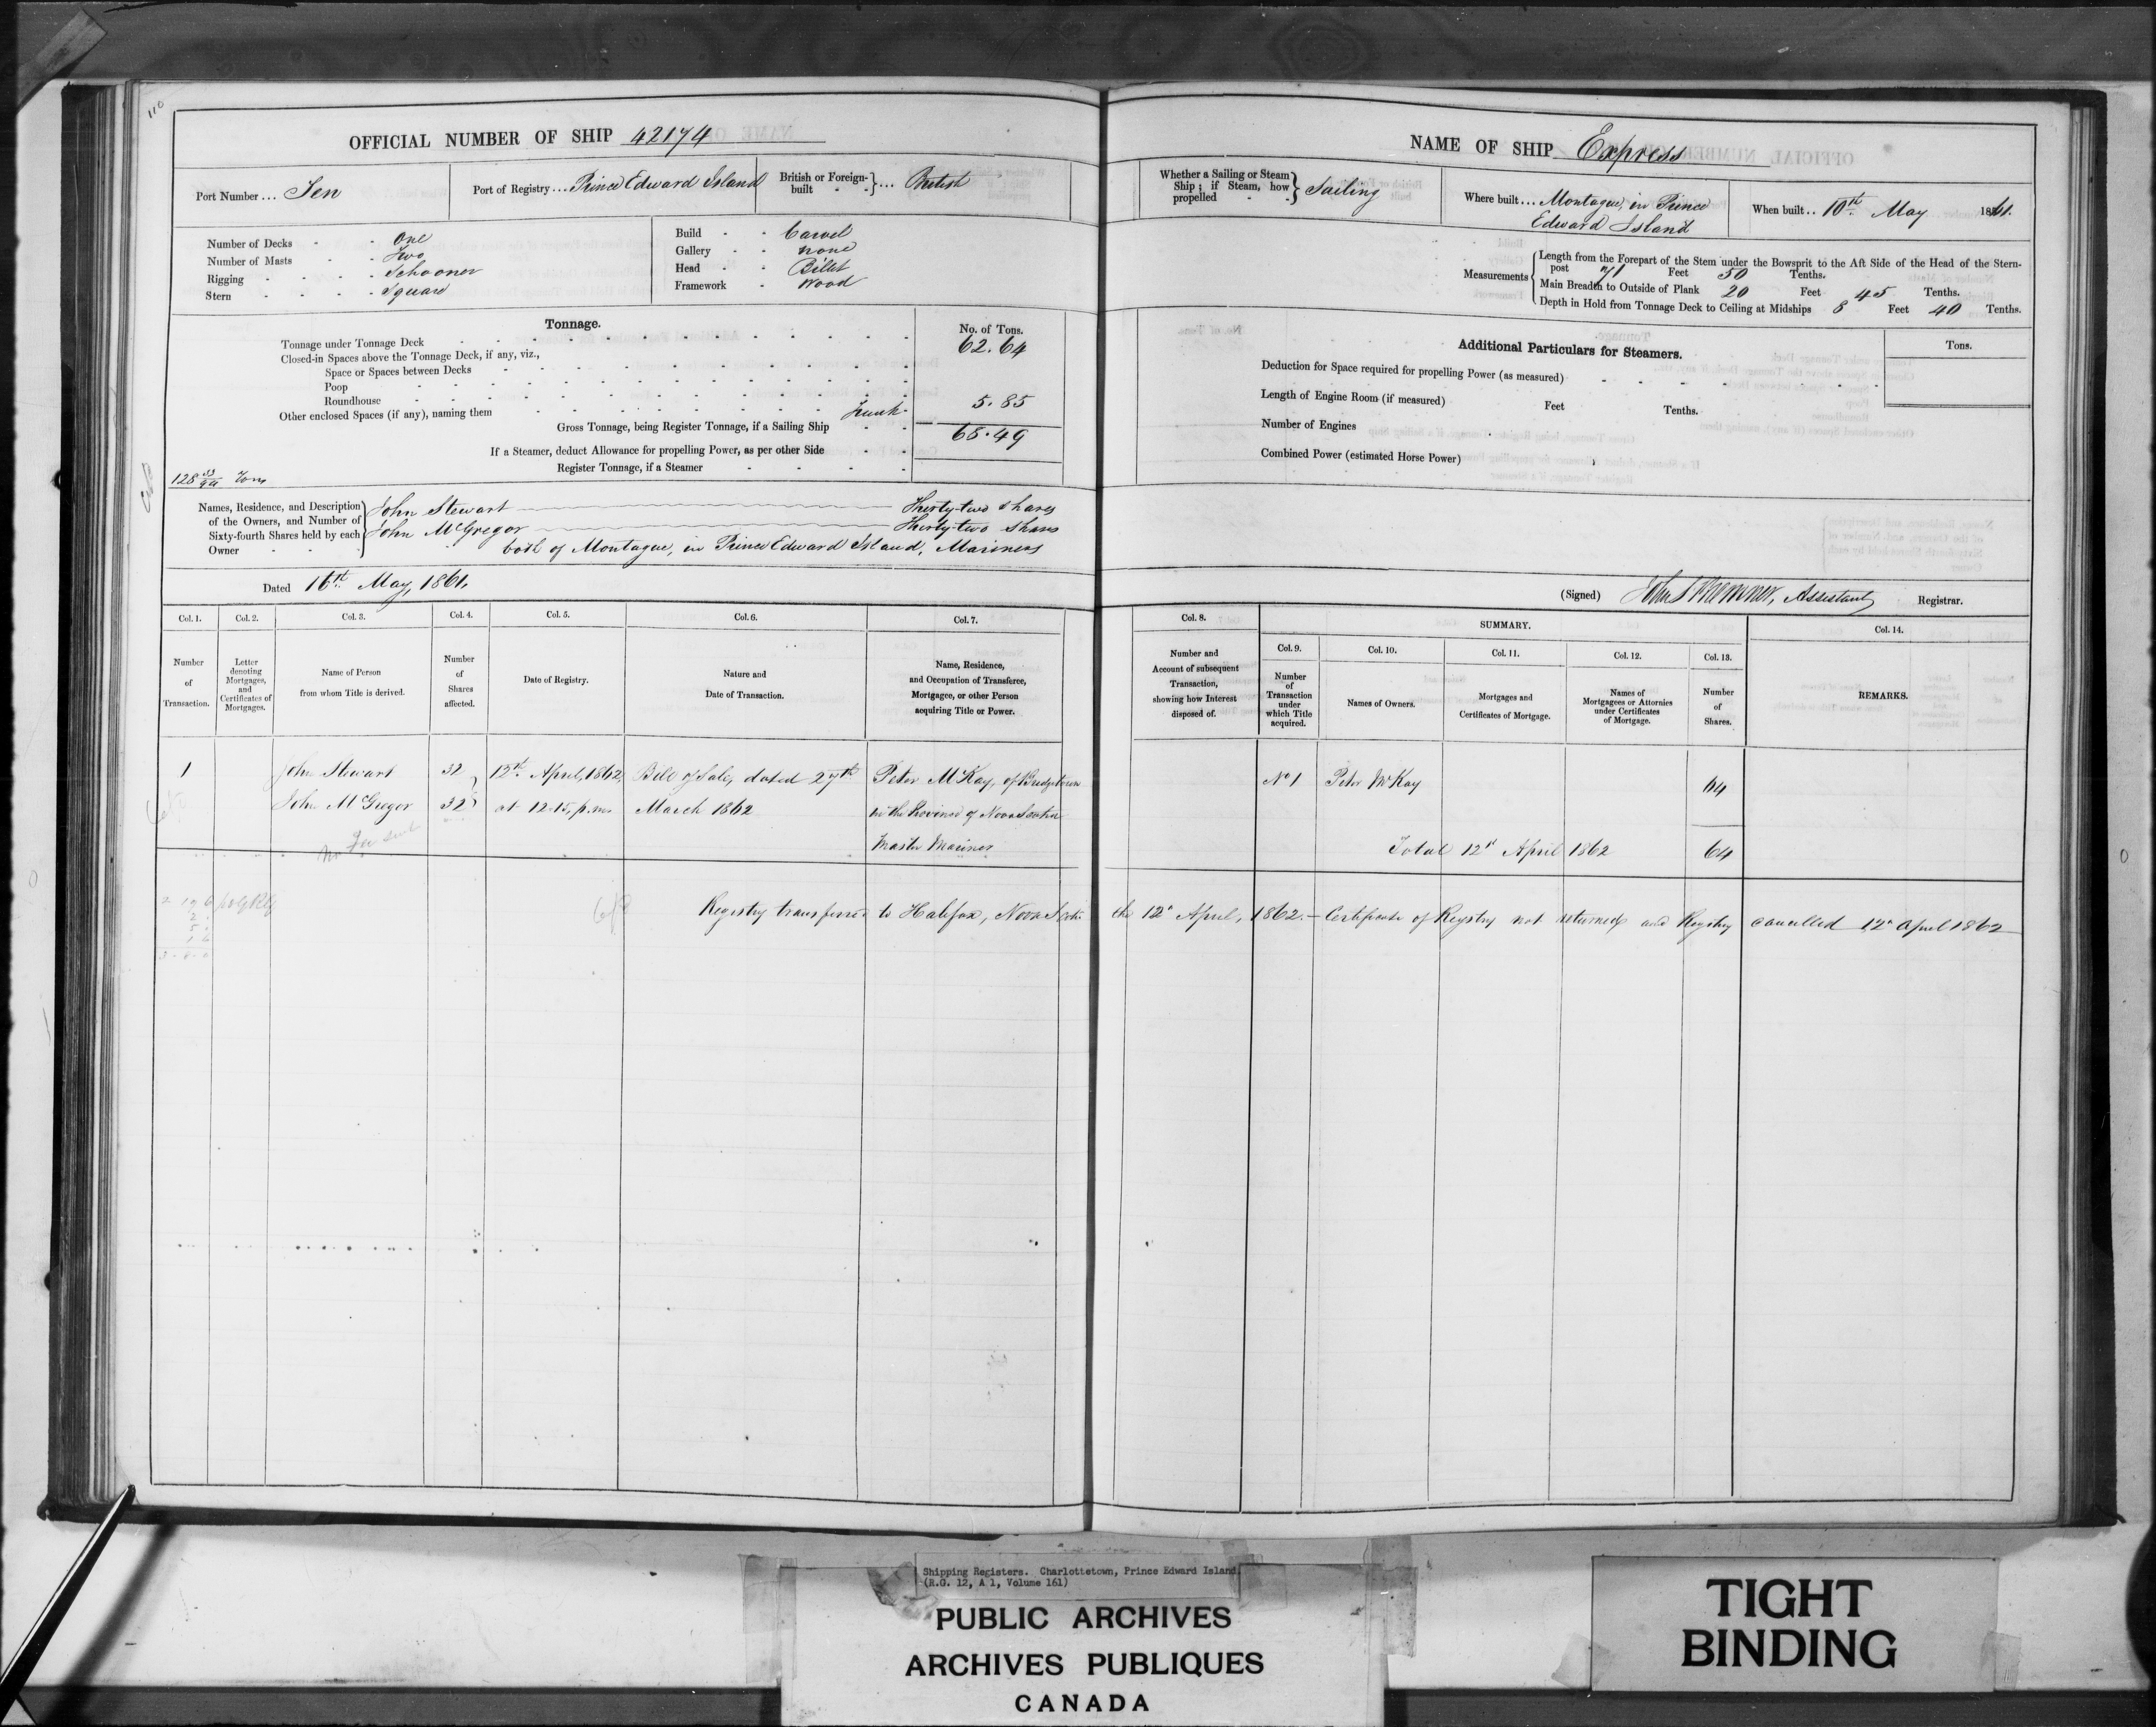 110
OFFICIAL NUMBER OF SHIP 42174
Port Number ... Ten
Port of Registry ... Prince Edward Island
British or Foreign-built ... British
Number of Decks - - One
Number of Masts - - Two
Rigging - - - - Schooner
Stern - - - - Square
Build - - Carvel
Gallery - - None
Head - - Billet
Framework - Wood
Tonnage.
No. of Tons.
Tonnage under Tonnage Deck 62.64
Closed-in Spaces above the Tonnage Deck, if any, viz.,
Space or Spaces between Decks
Poop
Roundhouse
Other enclosed Spaces (if any), naming them Trunk 5.85
Gross Tonnage, being Register Tonnage, if a Sailing Ship 68.49
If a Steamer, deduct Allowance for propelling Power, as per other Side
Register Tonnage, if a Steamer
128 33/94 Tons
Names, Residence, and Description of the Owners, and Number of Sixty-fourth Shares held by each Owner
John Stewart Thirty-two shares
John McGregor Thirty-two shares
both of Montague, in Prince Edward Island, Mariners
Dated 16th May, 1861.
NAME OF SHIP Express
Whether a Sailing or Steam Ship; if Steam, how propelled Sailing
Where built ... Montague, in Prince Edward Island
When built .. 10th May 1861.
Measurements
Length from the Forepart of the Stem under the Bowsprit to the Aft Side of the Head of the Stern-post 71 Feet 50 Tenths.
Main Breadth to Outside of Plank 20 Feet 45 Tenths.
Depth in Hold from Tonnage Deck to Ceiling at Midships 8 Feet 40 Tenths.
Additional Particulars for Steamers.
Tons.
Deduction for Space required for propelling Power (as measured)
Length of Engine Room (if measured) Feet Tenths.
Number of Engines
Combined Power (estimated Horse Power)
(Signed) Assistant Registrar.
Col. 1. Col. 2. Col. 3. Col. 4. Col. 5. Col. 6. Col. 7.
Number of Transaction.
Letter denoting Mortgages, and Certificates of Mortgages.
Name of Person from whom Title is derived.
Number of Shares affected.
Date of Registry.
Nature and Date of Transaction.
Name, Residence, and Occupation of Transferee, Mortgagee, or other Person acquiring Title or Power.
Col. 8.
Number and Account of subsequent Transaction, showing how Interest disposed of.
SUMMARY.
Col. 9. Col. 10. Col. 11. Col. 12. Col. 13. Col. 14.
Number of Transaction under which Title acquired.
Names of Owners.
Mortgages and Certificates of Mortgage.
Names of Mortgagees or Attornies under Certificates of Mortgage.
Number of Shares.
REMARKS.
1 John Stewart 32 12th April, 1862, Bill of Sale, dated 27th Peter McKay, of Bridgetown
John McGregor 32 at 12.15, p.m. March 1862 in the Province of Nova Scotia
Master Mariner
No 1 Peter McKay 64
Total 12th April 1862 64
Registry transferred to Halifax, Nova Scotia the 12th April, 1862. — Certificate of Registry not returned and Registry cancelled 12th April 1862
Shipping Registers. Charlottetown, Prince Edward Island
(R.G. 12, A 1, Volume 161)
PUBLIC ARCHIVES
ARCHIVES PUBLIQUES
CANADA
TIGHT
BINDING